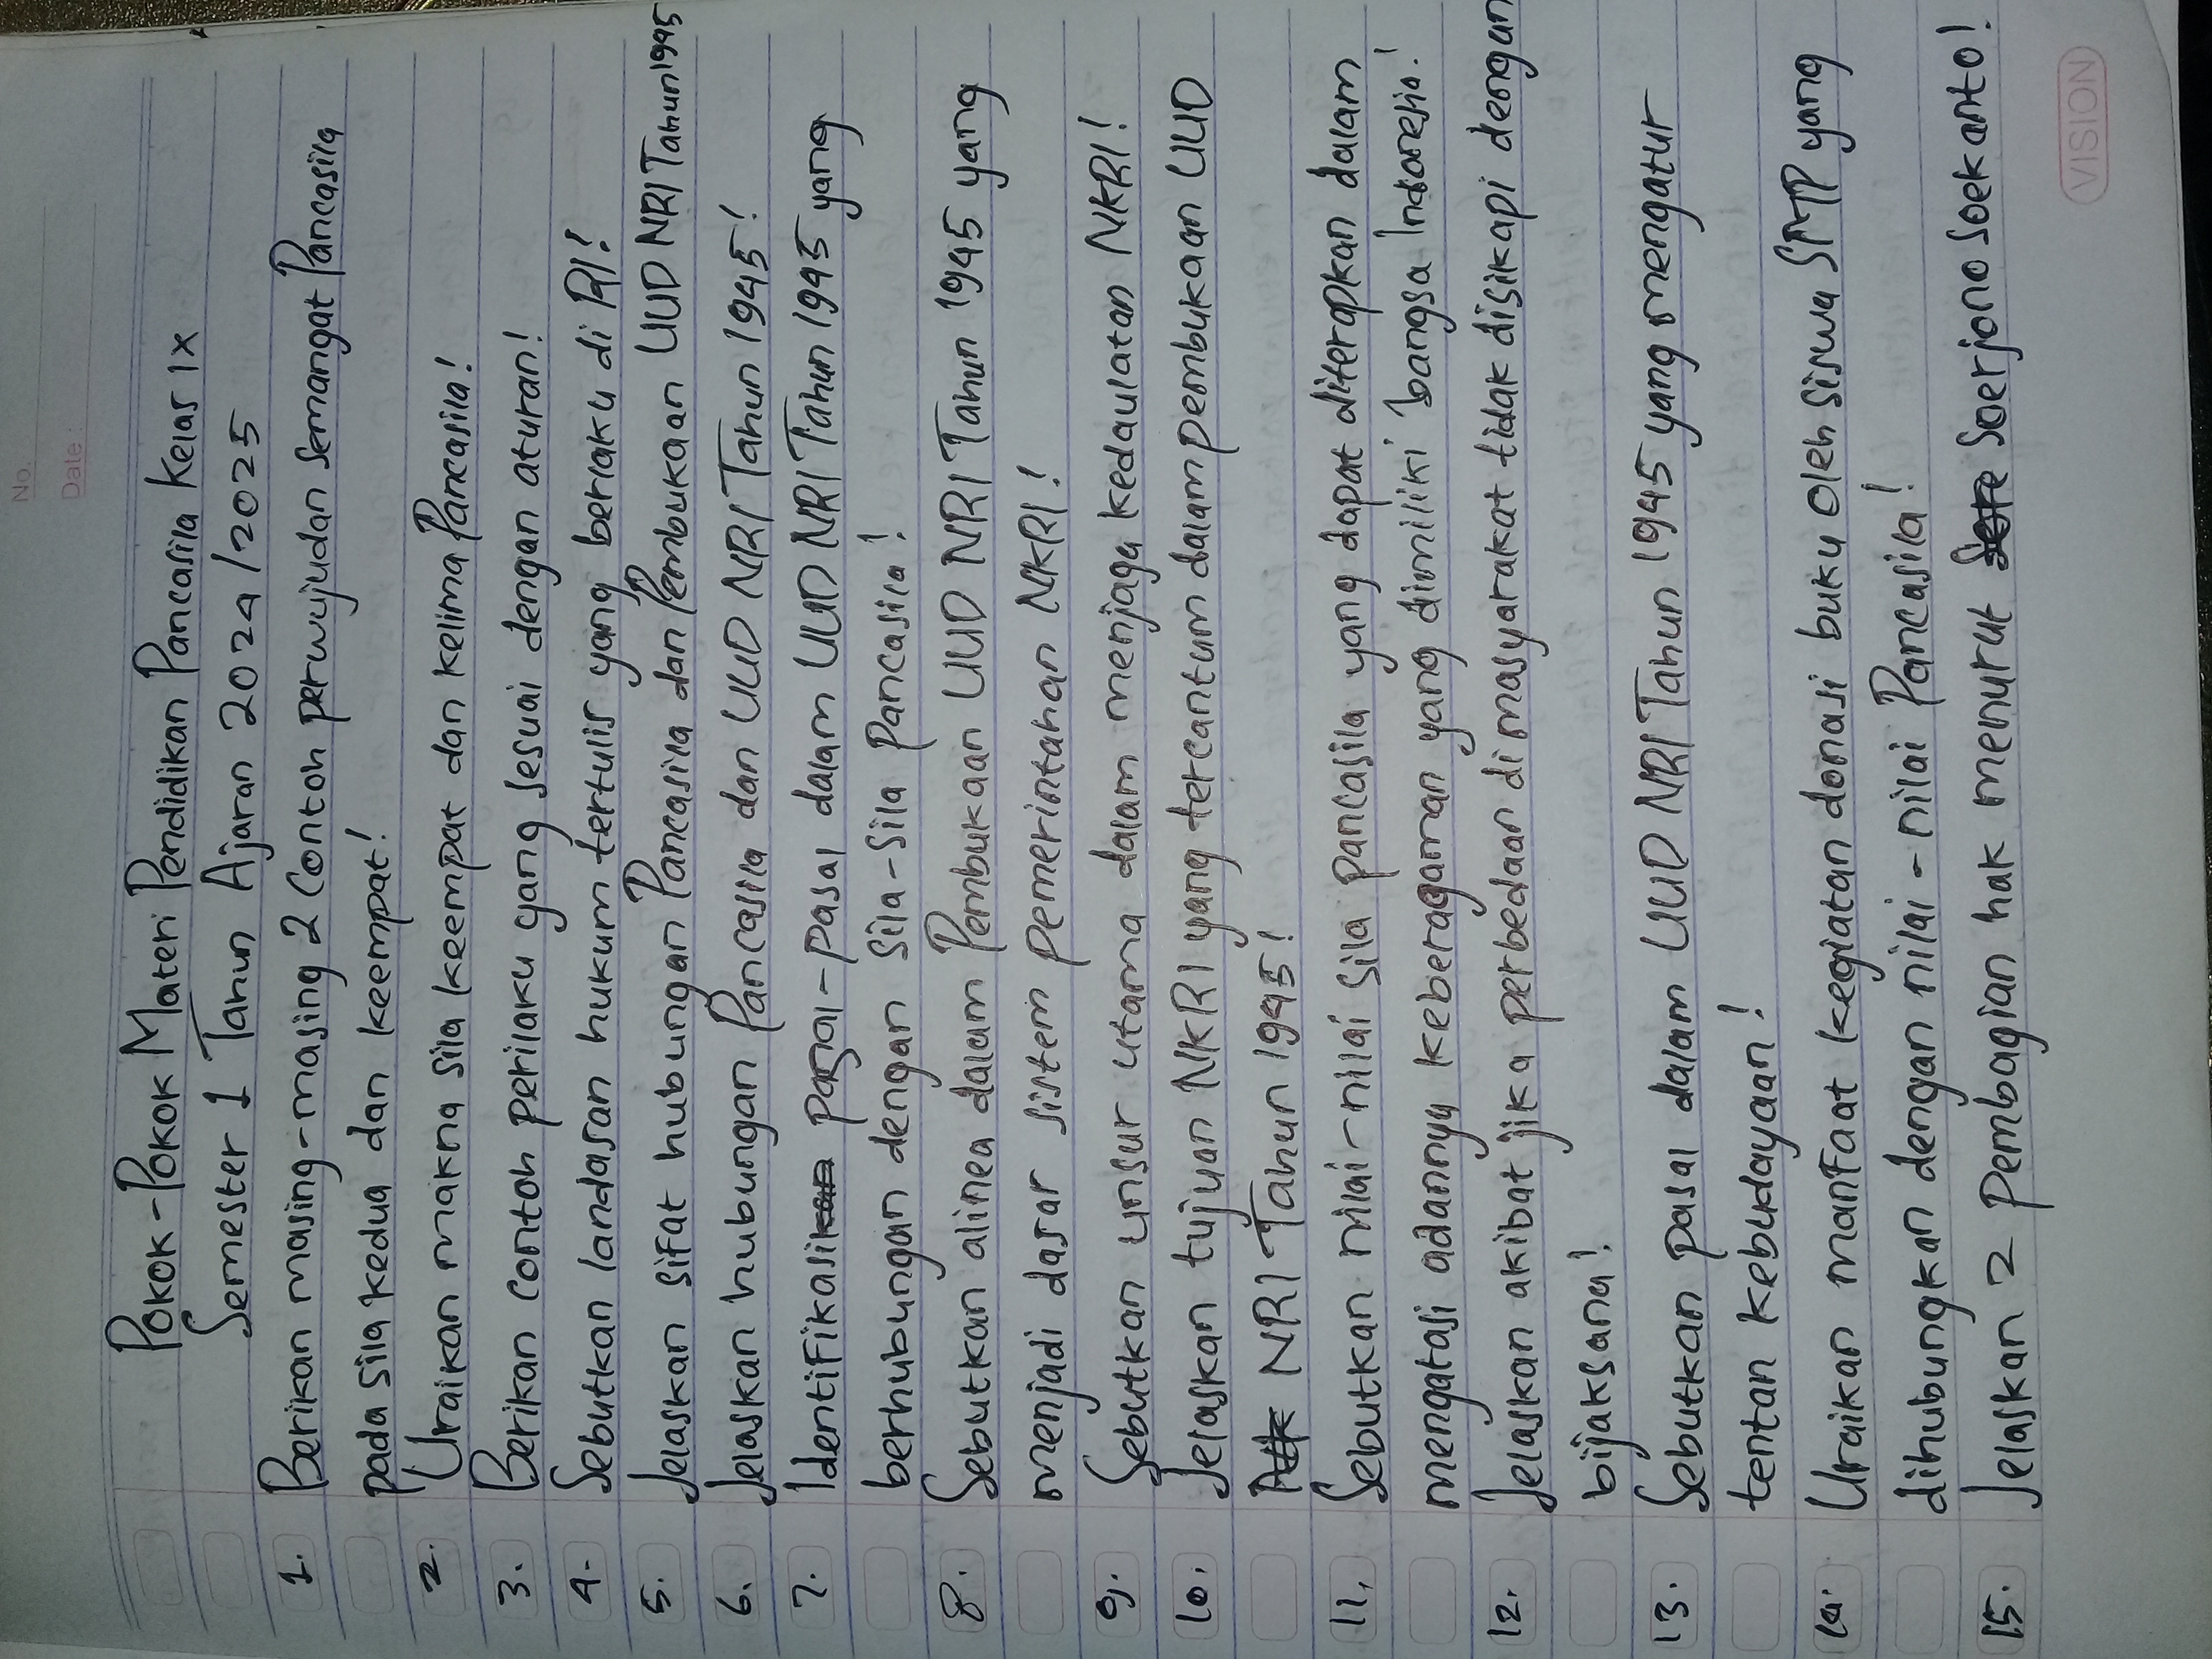 No.
Date :
Pokok-Pokok Materi Pendidikan Pancasila Kelas IX
Semester 1 Tahun Ajaran 2024/2025
1. Berikan masing-masing 2 Contoh perwujudan semangat Pancasila
pada sila kedua dan keempat!
2. Uraikan makna sila keempat dan kelima Pancasila!
3. Berikan contoh perilaku yang sesuai dengan aturan!
4. Sebutkan landasan hukum tertulis yang berlaku di RI!
5. Jelaskan sifat hubungan Pancasila dan Pembukaan UUD NRI Tahun 1945
6. Jelaskan hubungan Pancasila dan UUD NRI Tahun 1945!
7. Identifikasi pasal-pasal dalam UUD NRI Tahun 1945 yang
berhubungan dengan Sila-Sila Pancasila!
8. Sebutkan alinea dalam Pembukaan UUD NRI Tahun 1945 yang
menjadi dasar sistem pemerintahan NKRI!
9. Sebutkan unsur utama dalam menjaga kedaulatan NKRI!
10. Jelaskan tujuan NKRI yang tercantum dalam pembukaan UUD
NRI Tahun 1945!
11. Sebutkan nilai-nilai sila pancasila yang dapat diterapkan dalam
mengatasi adannya keberagaman yang dimiliki bangsa Indonesia!
12. Jelaskan akibat jika perbedaan di masyarakat tidak disikapi dengan
bijaksana!
13. Sebutkan pasal dalam UUD NRI Tahun 1945 yang mengatur
tentan kebudayaan!
14. Uraikan manfaat kegiatan donasi buku oleh siswa SMP yang
dihubungkan dengan nilai-nilai Pancasila!
15. Jelaskan 2 pembagian hak menurut Soerjono Soekanto!
VISION